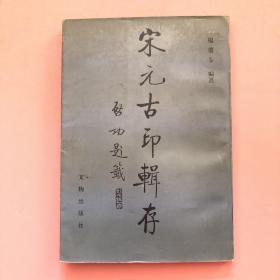 宋元古印輯存
啟功題籤
文物出版社
編著